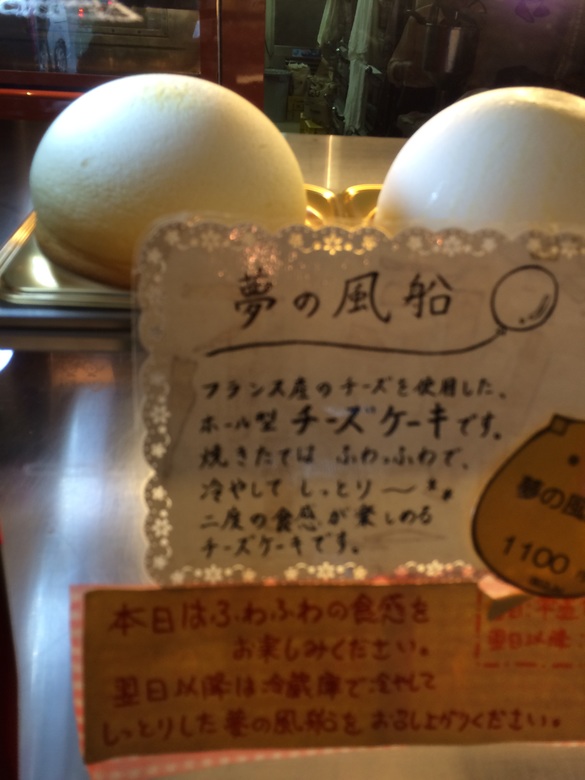 夢の風船
フランス産のチーズを使用した、
ホール型 チーズケーキです。
焼きたては ふわっふわで、
冷やして しっとり〜*。
二度の食感が楽しめる
チーズケーキです。
夢の風
1100
本日はふわふわの食感を
お楽しみください。
翌日以降は冷蔵庫で冷やして
しっとりした夢の風船をお召し上がりください。
翌日以降